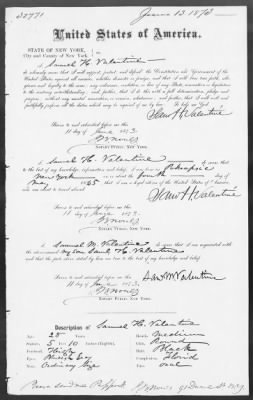 32771
June 13 1873
United States of America.
STATE OF NEW YORK,
City and County of New York, ss:
I, Samuel H. Valentine
do solemnly swear that I will support, protect and defend the Constitution and Government of the
United States against all enemies, whether domestic or foreign, and that I will bear true faith, alle-
giance and loyalty to the same, any ordinance, resolution or law of any State, convention or legislature
to the contrary notwithstanding; and further, that I do this with a full determination, pledge and
purpose, without any mental reservation or evasion whatsoever; and further, that I will well and
faithfully perform all the duties which may be required of me by law. So help me God.
Saml H Valentine
Sworn to and subscribed before me this
11 day of June 1873.
NOTARY PUBLIC, NEW YORK.
I, Samuel H. Valentine do swear that
to the best of my knowledge, information and belief, I was born in
New York on or about the fourth day of
May
Saml H Valentine
Sworn to and subscribed before me this
11 day of June 1873.
NOTARY PUBLIC, NEW YORK.
I, Samuel M. Valentine do swear that I am acquainted with
the above-named Saml H. Valentine and
that the facts above stated by him are true to the best of my knowledge and belief.
Saml M Valentine
Sworn to and subscribed before me this
11 day of June 1873.
NOTARY PUBLIC, NEW YORK.
Description of Samuel H. Valentine
Age, 28 Mouth, Medium
Stature, 5 ft 10 inches (English). Chin, Round
Forehead, High Hair, Black
Eyes, Complexion, Florid
Nose, Ordinary Face, Oval